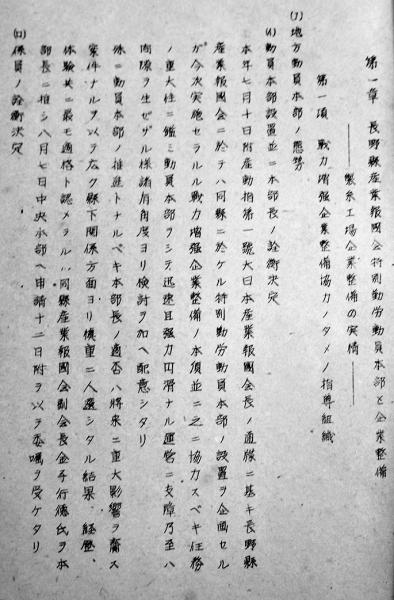 第一章 長野縣産業報國会特別勤労動員本部と企業整備
―― 製糸工場企業整備の実情 ――
第一項 戦力増强企業整備協力ノタメノ指導組織
(1)地方動員本部ノ態勢
(イ)動員本部設置並ニ本部長ノ詮衡決定
本年七月十日附産動指第一號大日本産業報國会長ノ通牒ニ基キ長野縣
産業報國会ニ於テハ同縣ニ於ケル特別勤労動員本部ノ設置ヲ企画セル
ガ今次実施セラルル戦力増强企業整備ノ本須並ニ之ニ協力スベキ任務
ノ重大性ニ鑑ミ動員本部ヲシテ迅速且强力円滑ナル運営ニ支障乃至ハ
間隙ヲ生ゼザル様諸角度ヨリ検討ヲ加ヘ配意シタリ
殊ニ動員本部ノ推進トナルベキ本部長ノ適否ハ将来ニ重大影響ヲ齎ス
案件ナルヲ以テ広ク縣下関係方面ヨリ慎重ニ人選シタル結果、経歴、
体験共ニ最モ適格ト認メラルル同縣産業報國会副会長金子行徳氏ヲ本
部長ニ推シ八月七日中央本部ヘ申請十二日附ヲ以テ委嘱ヲ受ケタリ
(ロ)係員ノ詮衡決定